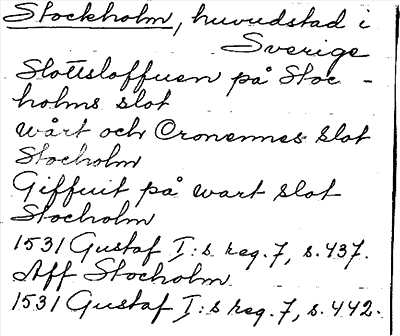 Stockholm, huvudstad i
Sverige
Slottsloffuen på Stoc-
holms slot
wårt och Cronennes slot
Stocholm
Giffuit på wart slot
Stocholm
1531 Gustaf I:s reg. 7, s. 437.
Aff Stocholm.
1531 Gustaf I:s reg. 7, s. 442.